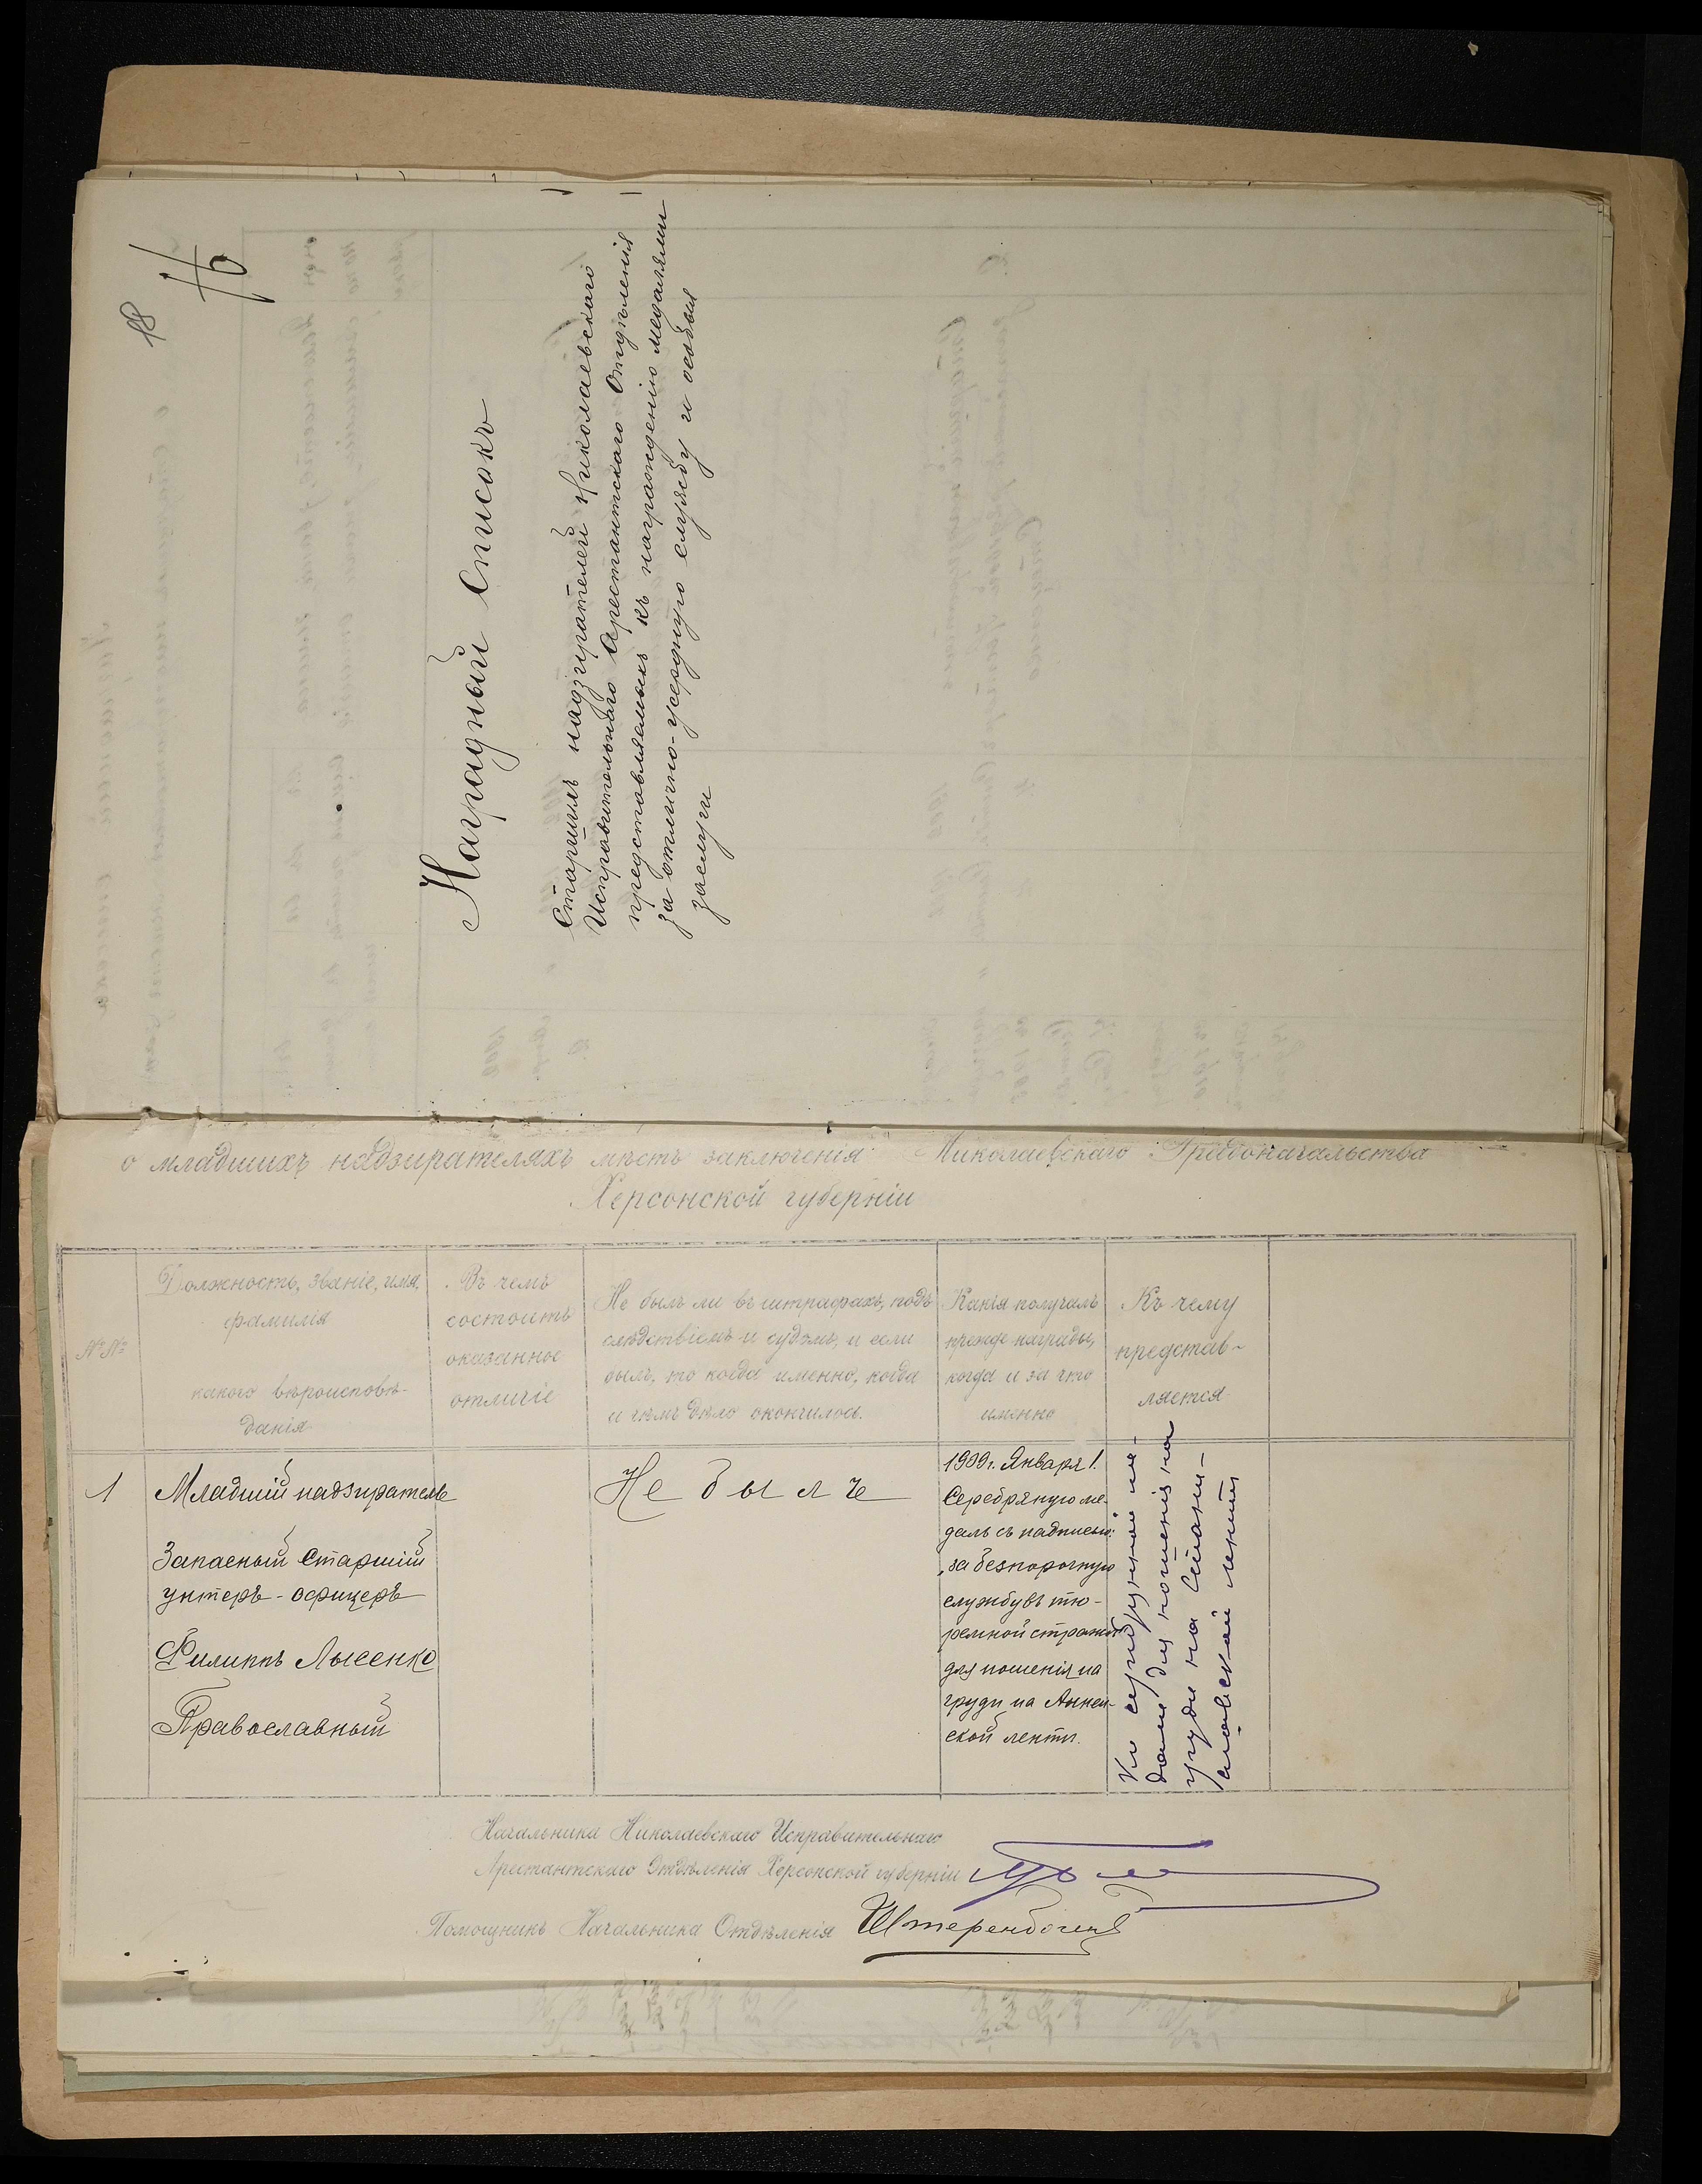 18
16
Наградный Списокъ
Старшимъ надзирателей Николаевскаго
Исправительнаго Арестантскаго Отдѣленія
представляемыхъ къ награжденію медалями
за отлично-усердную службу и особыя
заслуги
о младшихъ надзирателяхъ мѣстъ заключенія Николаевскаго Градоначальства
Херсонской губерніи
№№
Должность, званіе, имя,
фамилія
какого вѣроисповѣ-
данія
Въ чемъ
состоитъ
оказанное
отличіе
Не былъ ли въ штрафахъ, подъ
слѣдствіемъ и судомъ, и если
былъ, то когда именно, когда
и чѣмъ дѣло окончилось.
Какія получалъ
прежде награды,
когда и за что
именно
Къ чему
представ-
ляется
1
Младшій надзиратель
Запасный Старшій
унтеръ-офицеръ
Филиппъ Лысенко
Православный
Не былъ
1909 г. Января 1.
Серебряную ме-
даль съ надписью:
„за безпорочную
службу въ тю-
ремной стражѣ"
для ношенія на
груди на Аннен-
ской лентѣ.
Къ серебрянной ме-
дали для ношенія на
груди на Стани-
славской лентѣ
Начальника Николаевскаго Исправительнаго
Арестантскаго Отдѣленія Херсонской губерніи
Помощникъ Начальника Отдѣленія